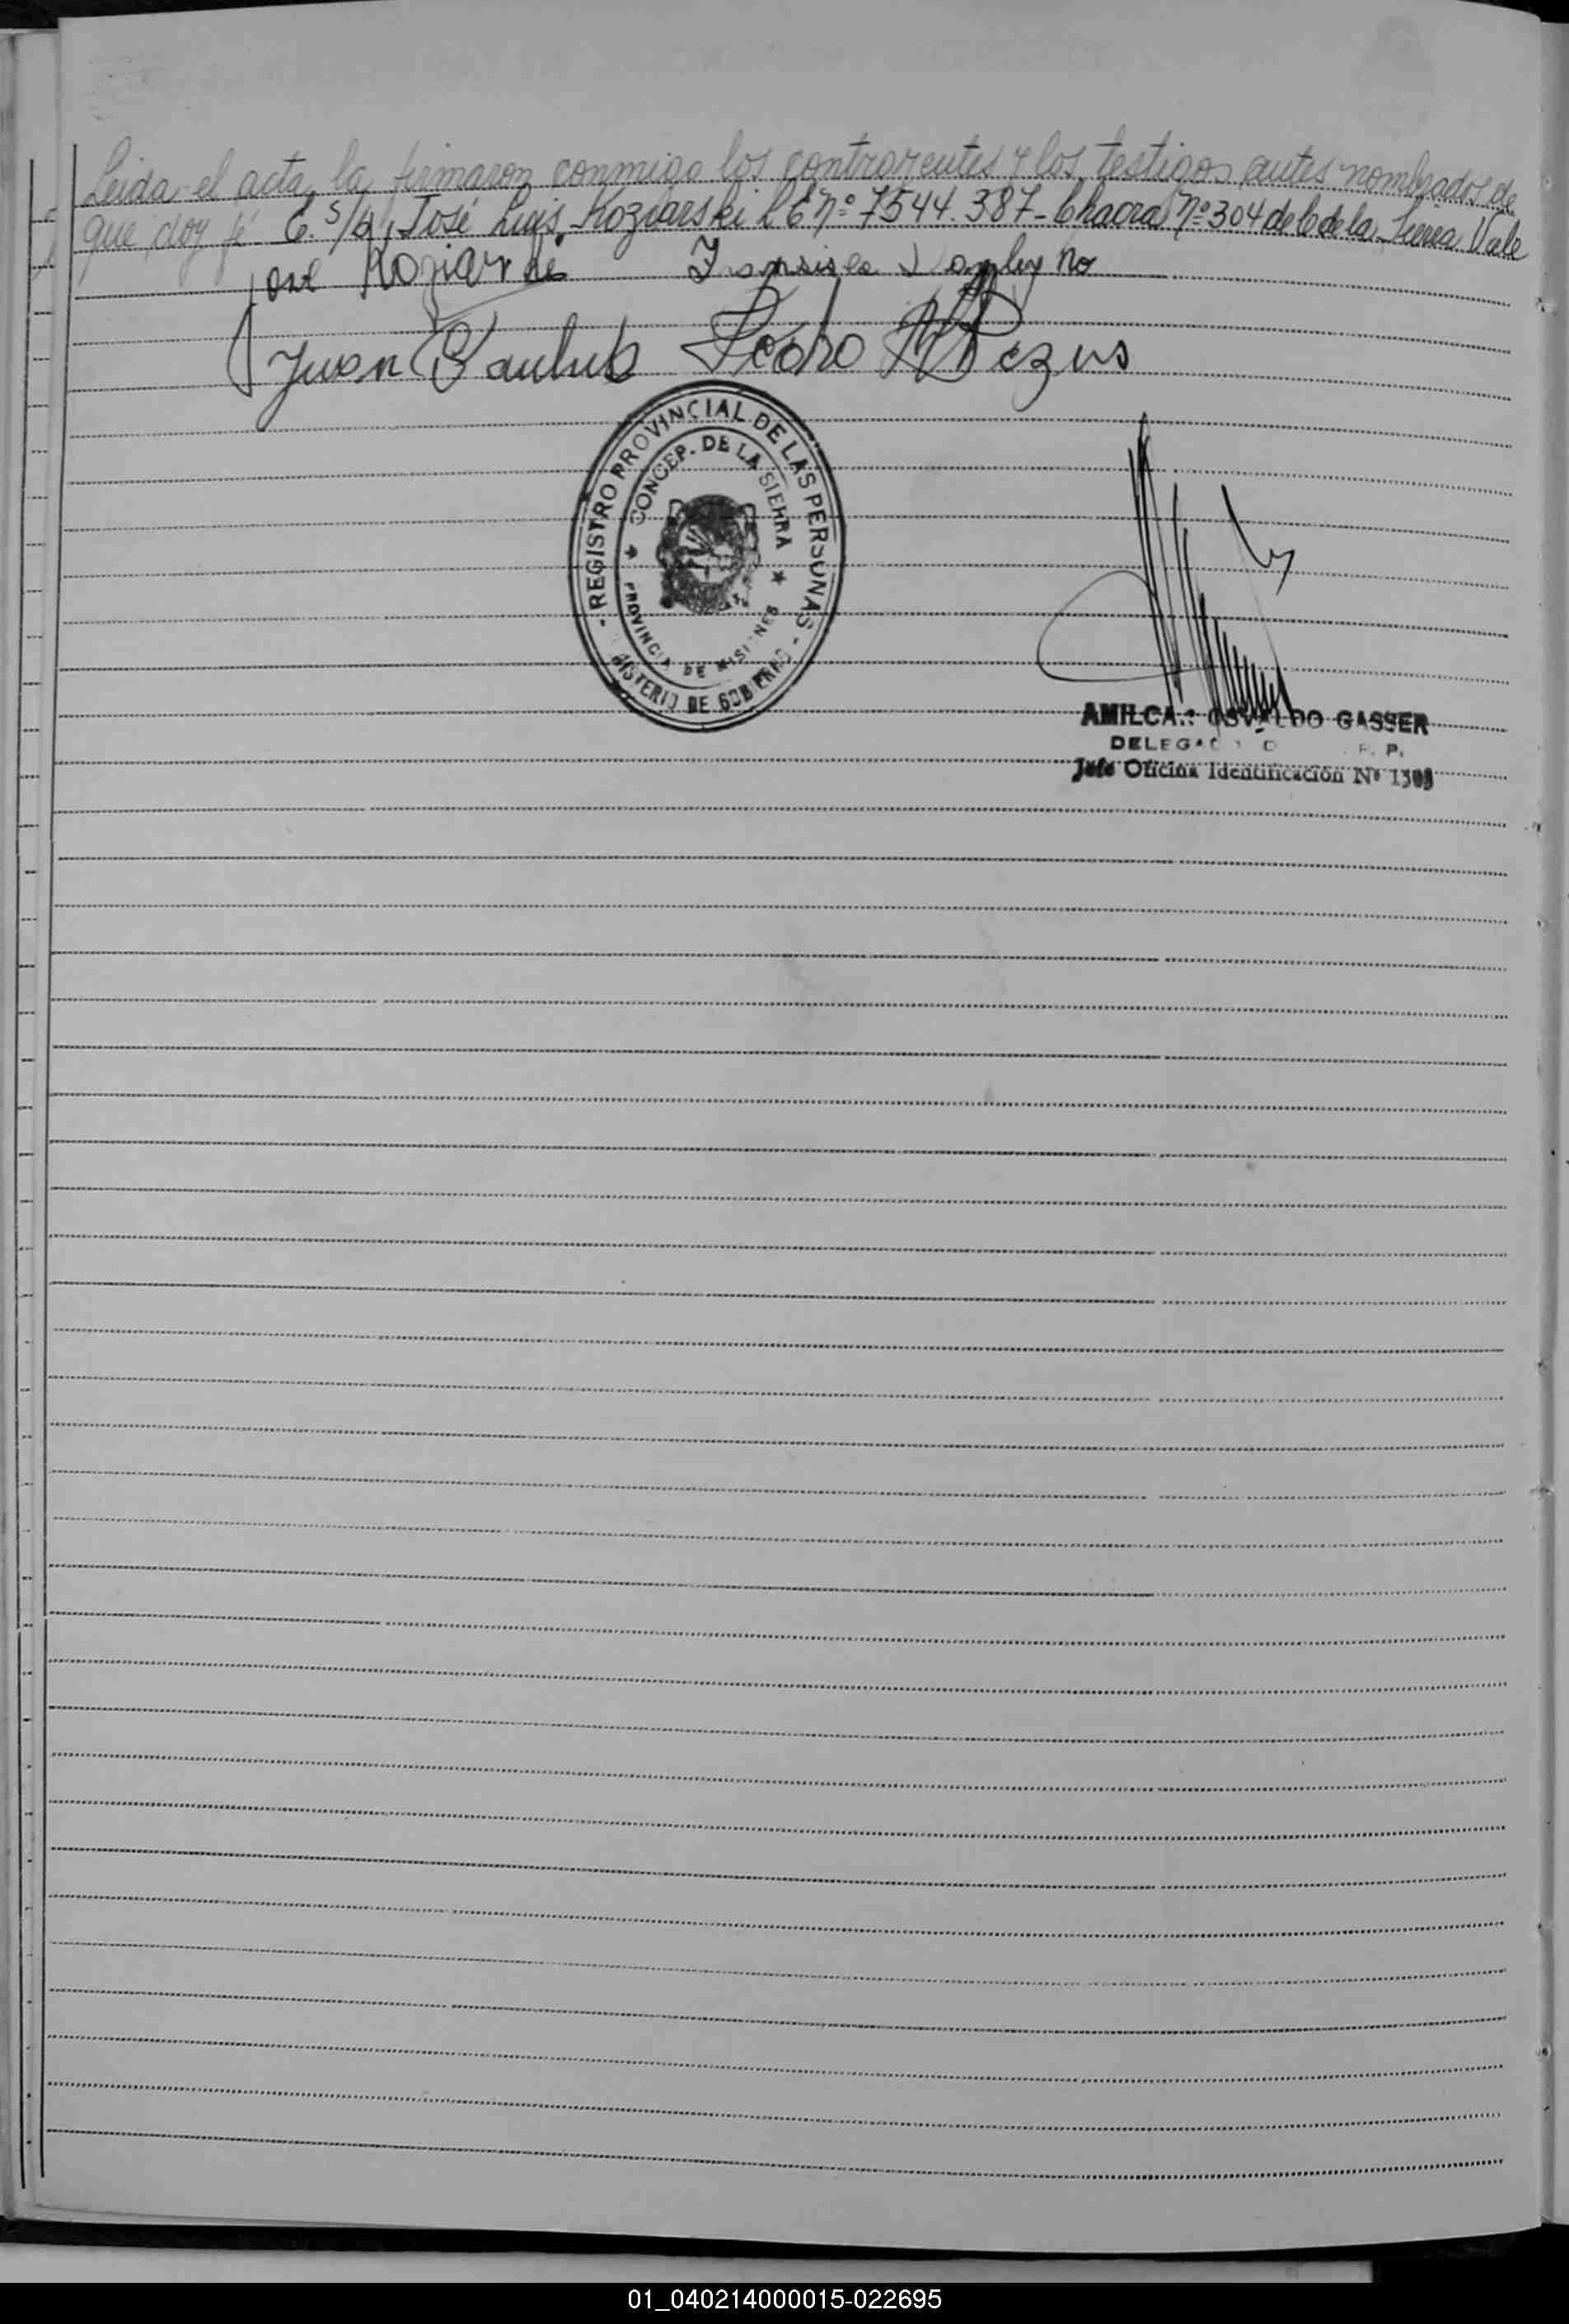 Leida el acta, la firmaron conmigo los contrayentes y los testigos antes nombrados de
que doy fé. E. S/R, José Luis Koziarski L E Nº 7544.387- Chacra Nº 304 de C de la Sierra Vale
José Koziarski
Juan Paulus Pedro
REGISTRO PROVINCIAL DE LAS PERSONAS
CONCEP. DE LA SIERRA
PROVINCIA DE MISIONES
NISTERIO DE GOBIERNO
AMILCAR OSVALDO GASSER
Jefe Oficina Identificación Nº
01_040214000015-022695